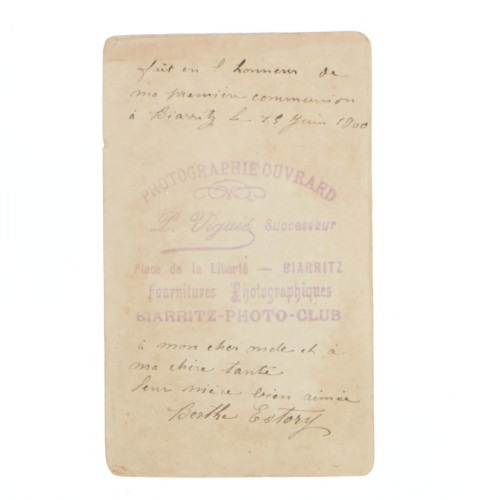 fait en l honneur de
ma première communion
à Biarritz le 15 Juin 1900
PHOTOGRAPHIE OUVRARD
P. Viguié Successeur
Place de la Liberté — BIARRITZ
Fournitures Photographiques
BIARRITZ-PHOTO-CLUB
à mon cher oncle et à
ma chère tante
leur nièce bien aimée
Berthe Estory